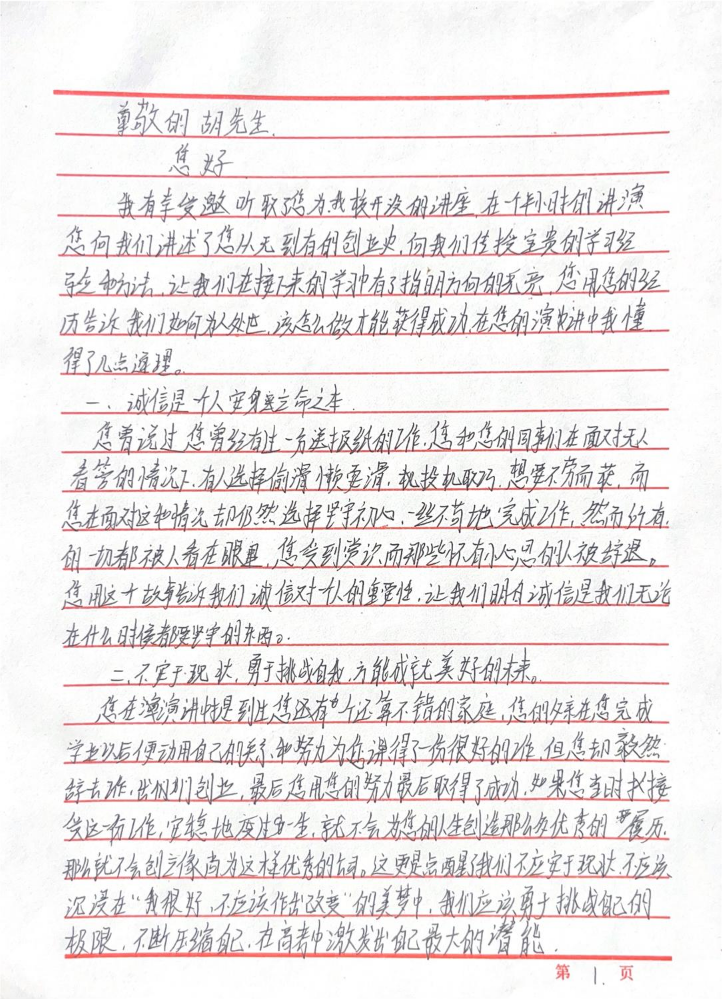 尊敬的胡先生.
您好
我有幸受邀听取了您为我校开设的讲座.在一个半小时的讲演
您向我们讲述了您从无到有的创业史,向我们传授宝贵的学习经
验和方法,让我们在接下来的学习中有了指明方向的光亮,您用您的经
历告诉我们如何为人处世,该怎么做才能获得成功,在您的演讲中我懂
得了几点道理。
一、诚信是个人安身立命之本.
您曾说过您曾经有过一份送报纸的工作,您和您的同事们在面对无人
看管的情况下,有人选择偷滑懒耍滑,机投机取巧,想要不劳而获,而
您在面对这种情况却仍然选择坚守初心,一丝不苟地完成工作,然而所有
的一切都被人看在眼里,您受到赏识而那些怀有小心思的人被辞退。
您用这个故事告诉我们诚信对个人的重要性,让我们明白诚信是我们无论
在什么时候都要坚守的东西。
二.不定于现状,勇于挑战自我,方能成就美好的未来。
您在演讲中提到您还有个还算不错的家庭,您的父亲在您完成
学业以后便动用自己的关系和努力为您谋得了一份很好的工作,但您却毅然
辞去工作,出们创业,最后您用您的努力最后取得了成功,如果您当时找接
受这一份工作,安稳地度过一生,就不会为您的人生创造那么多优秀的履历,
那么就不会创立像尚为这样优秀的公司。这更是点醒了我们不应安于现状,不应该
沉浸在"我很好,不应该作出改变"的美梦中,我们应该勇于挑战自己的
极限,不断压缩自己,在高考中激发出自己最大的潜能.
第 1. 页